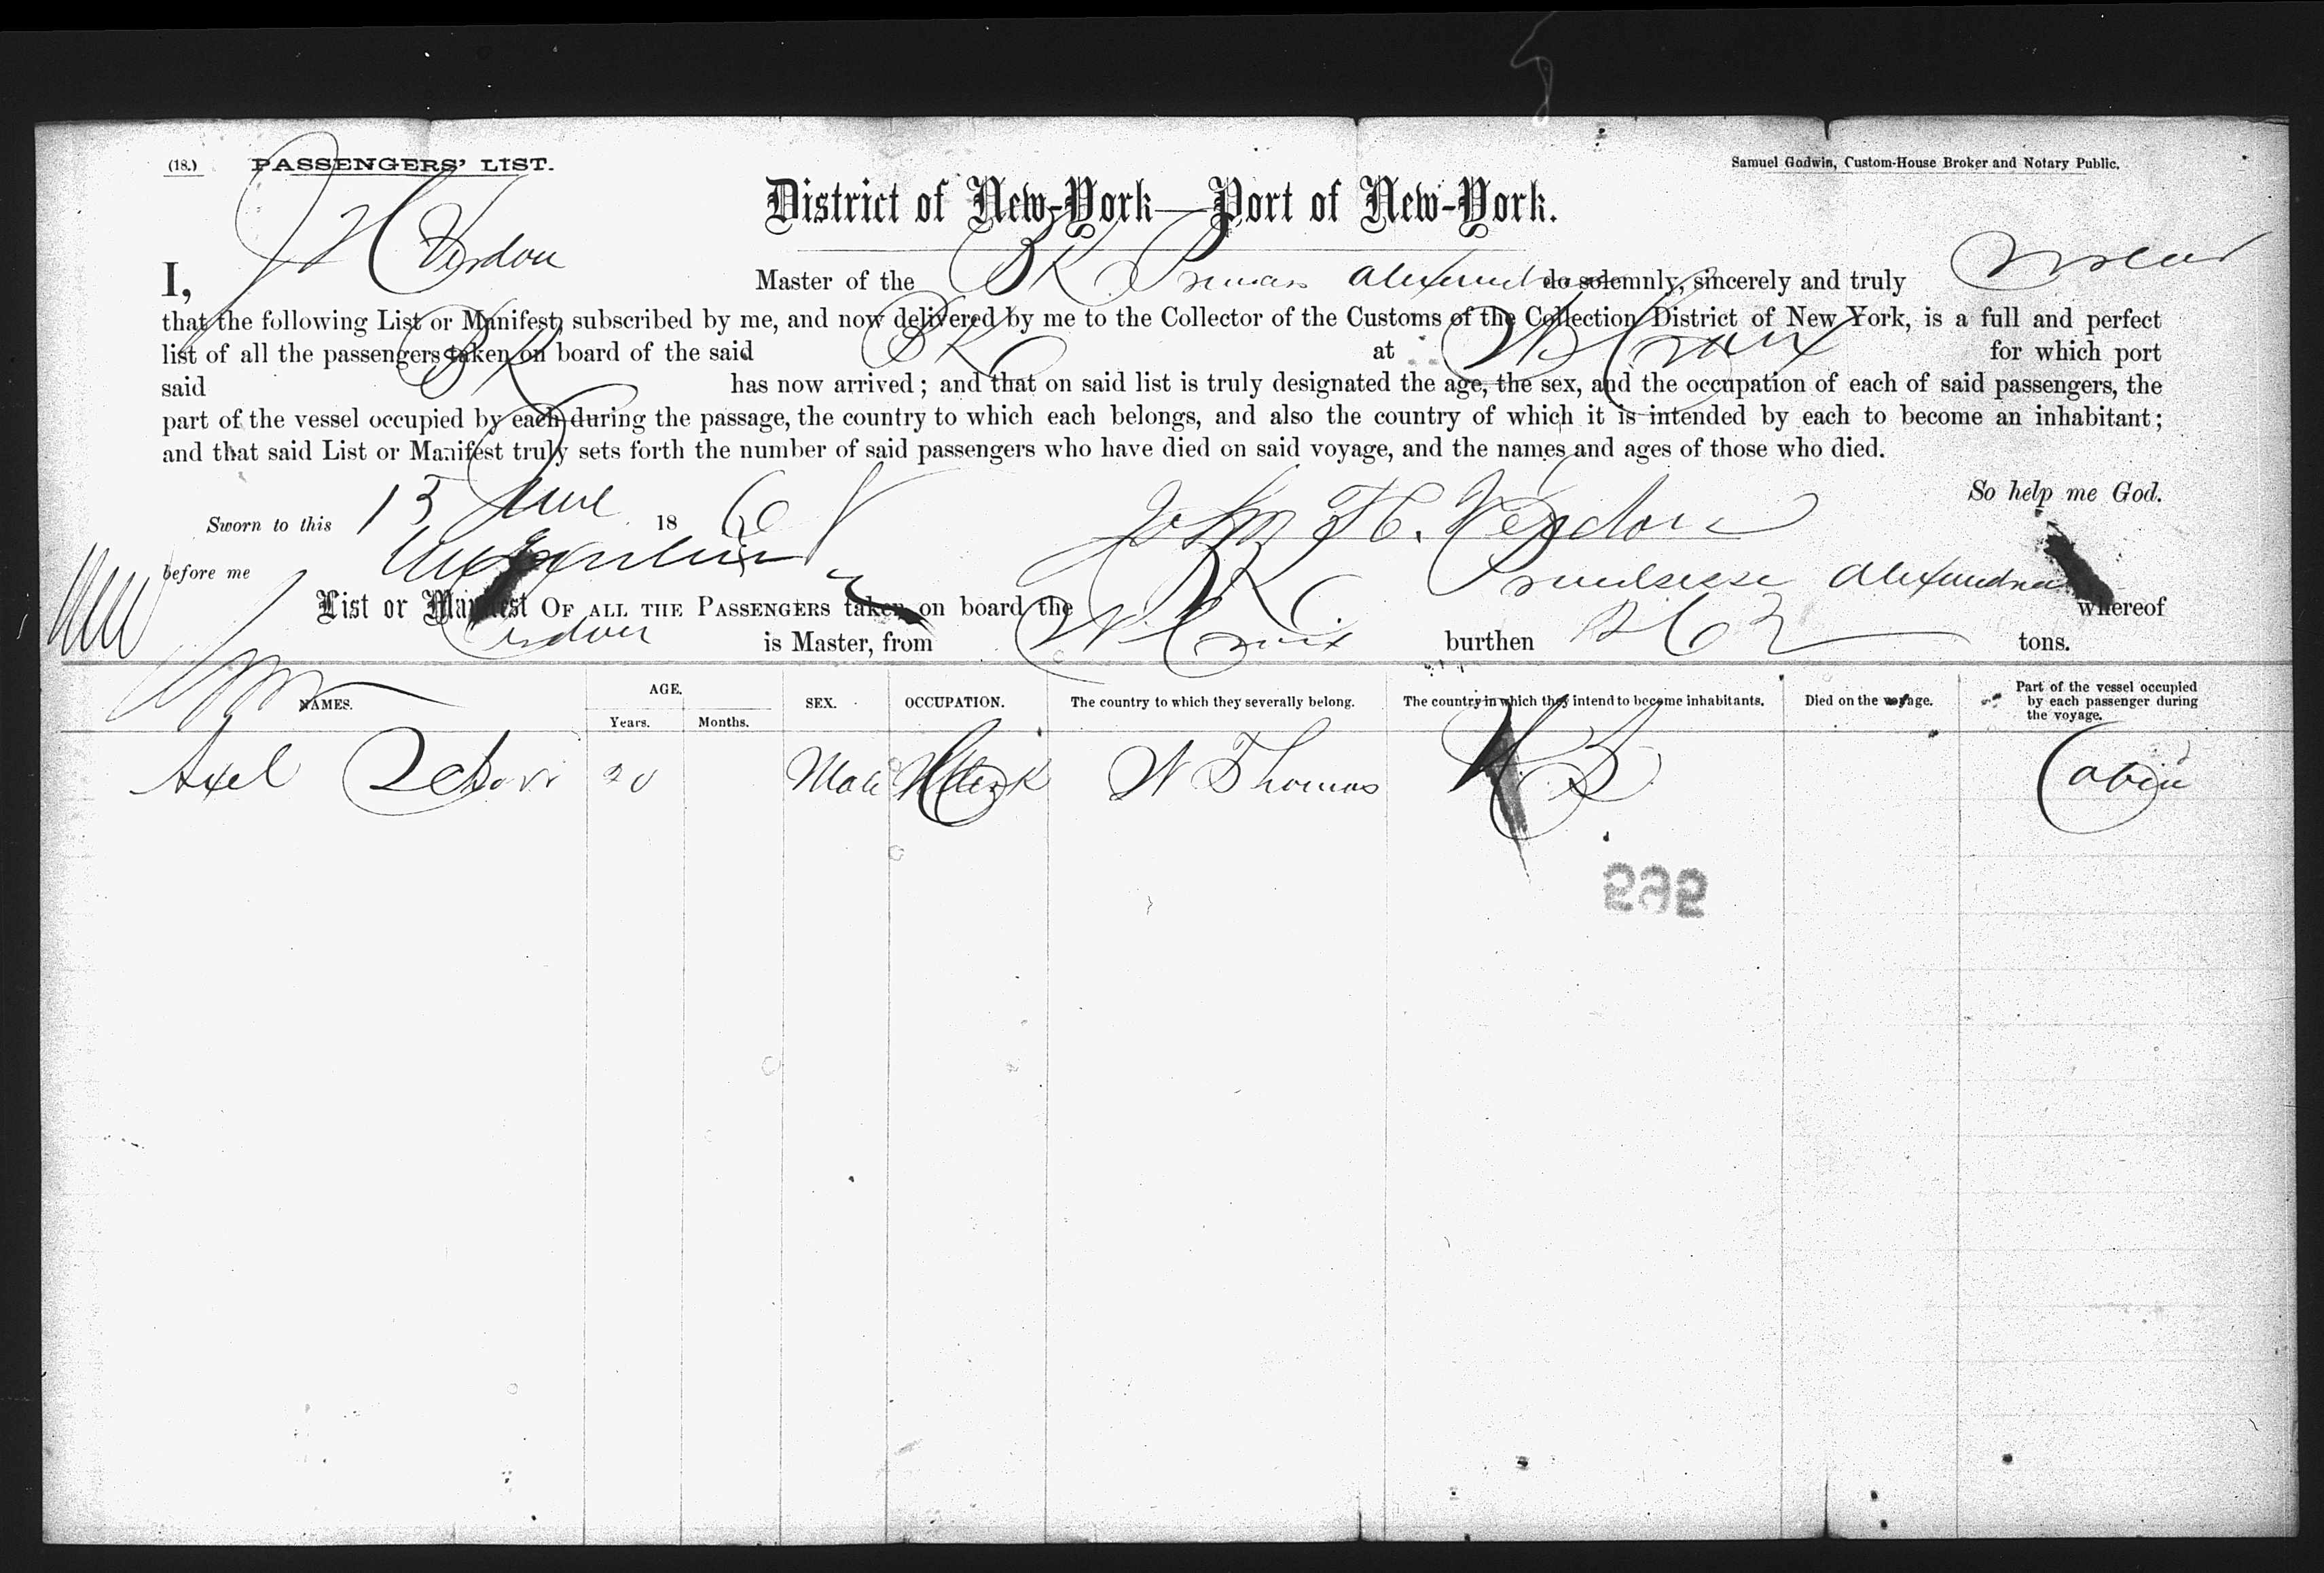 (18.) PASSENGERS' LIST.
Samuel Godwin, Custom-House Broker and Notary Public.
District of New-York—Port of New-York.
I, J H Verdon Master of the BK Princess Alexandra do solemnly, sincerely and truly swear
that the following List or Manifest, subscribed by me, and now delivered by me to the Collector of the Customs of the Collection District of New York, is a full and perfect
list of all the passengers taken on board of the said BK at St Croix for which port
said BK has now arrived; and that on said list is truly designated the age, the sex, and the occupation of each of said passengers, the
part of the vessel occupied by each during the passage, the country to which each belongs, and also the country of which it is intended by each to become an inhabitant;
and that said List or Manifest truly sets forth the number of said passengers who have died on said voyage, and the names and ages of those who died.
So help me God.
Sworn to this 15 June 186 John H. Verdon
before me
List or Manifest OF ALL THE PASSENGERS taken on board the BK Alexandra whereof
Verdon is Master, from St Croix burthen 262 tons.
NAMES. AGE. Years. Months. SEX. OCCUPATION. The country to which they severally belong. The country in which they intend to become inhabitants. Died on the voyage. Part of the vessel occupied by each passenger during the voyage.
Axel 20 Male Clerk St Thomas Cabin